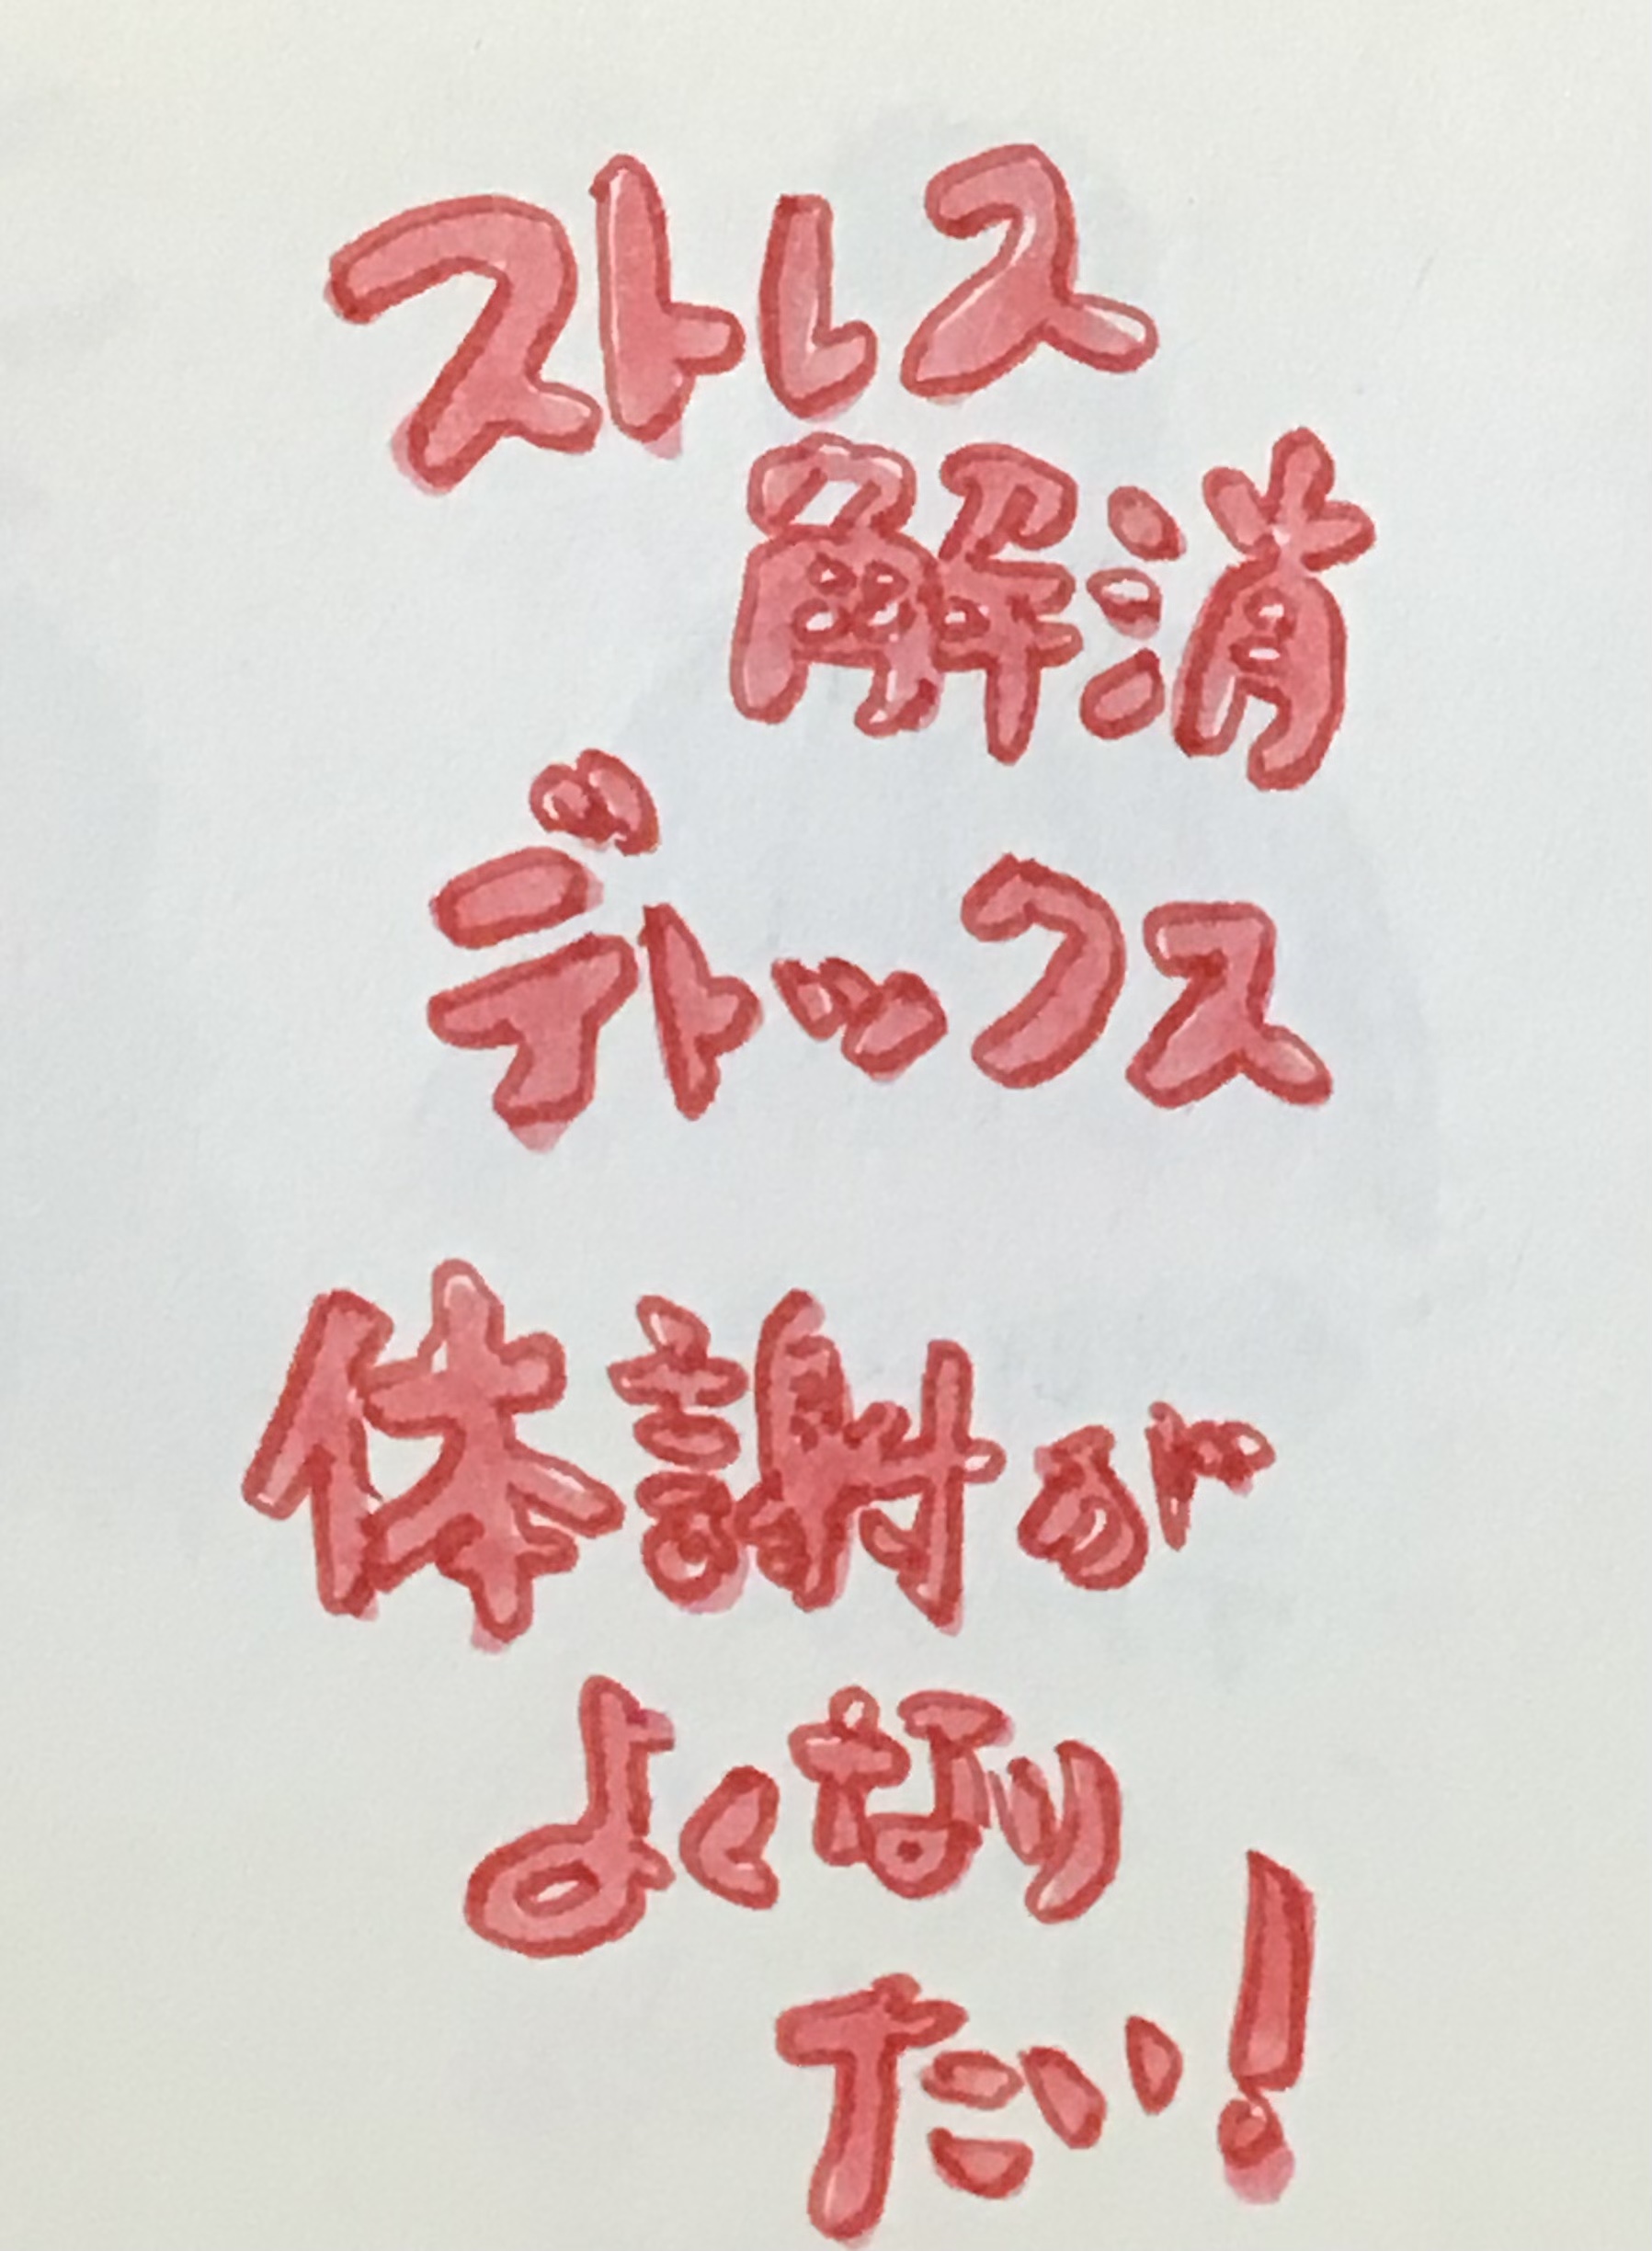 ストレス
解消
デトックス
体謝が
よくなり
たい!